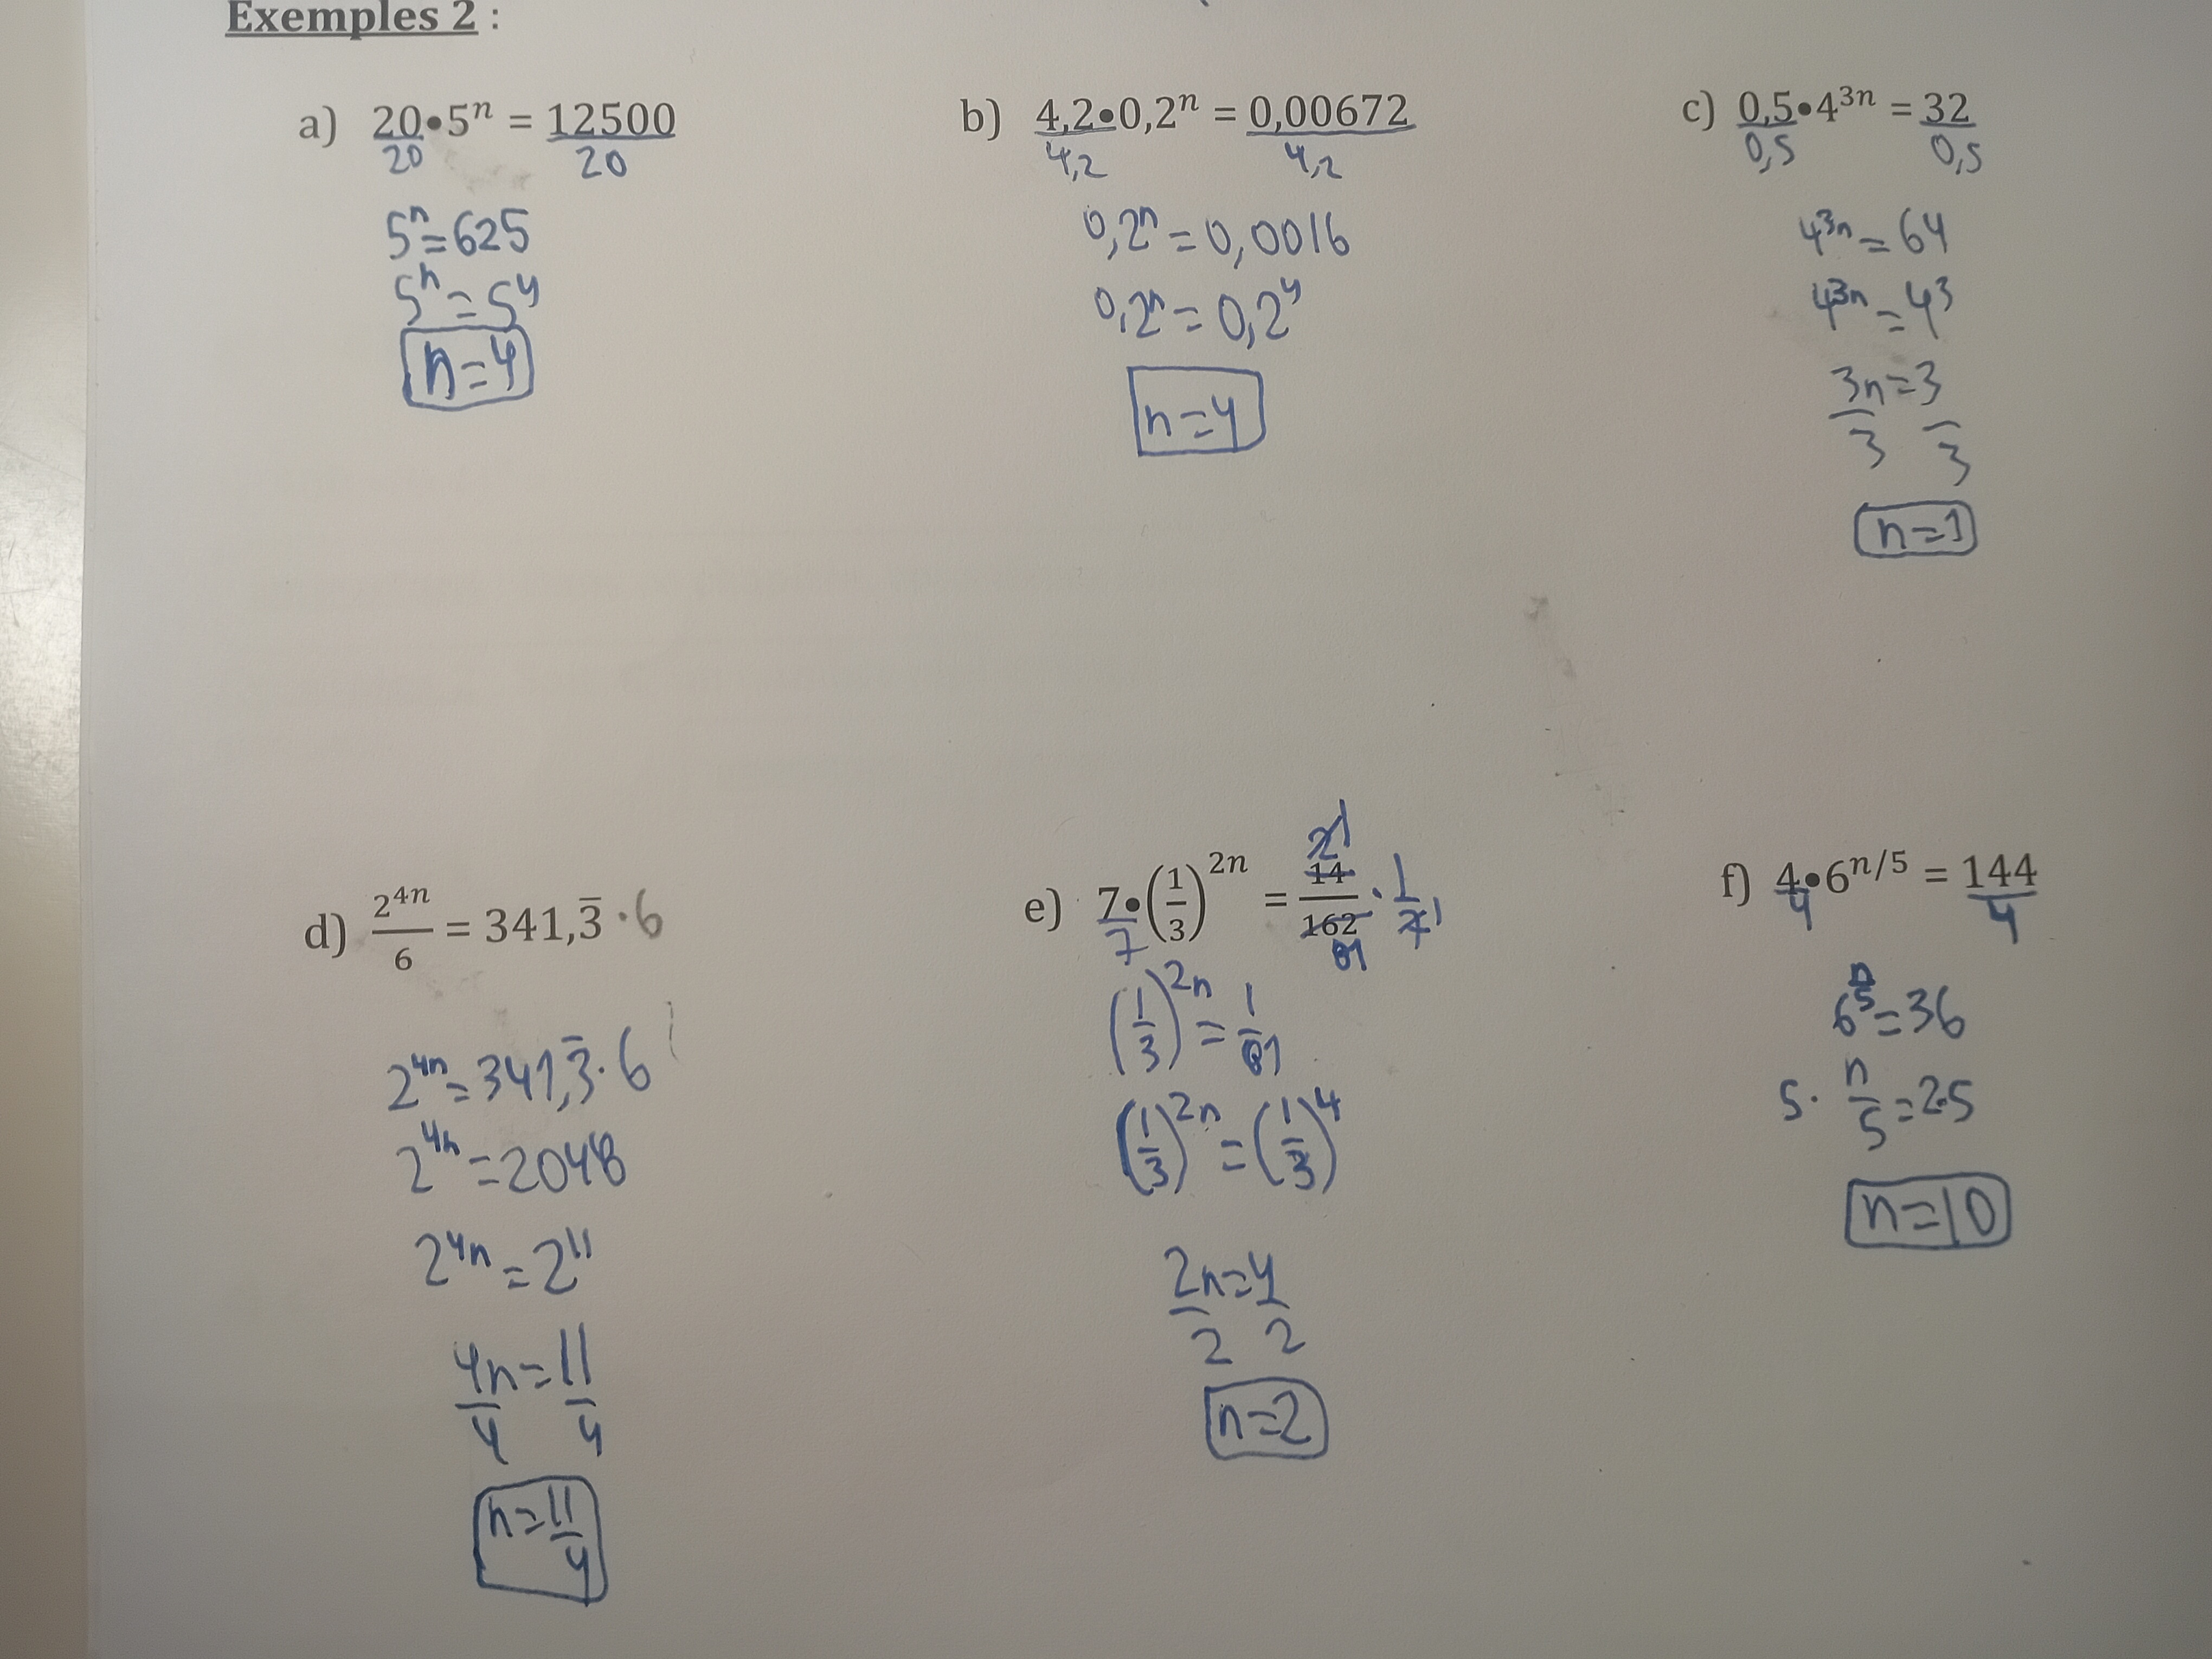 Exemples 2 :
a) 20•5ⁿ = 12500
20 20
5ⁿ=625
5ⁿ=5⁴
n=4
b) 4,2•0,2ⁿ = 0,00672
4,2 4,2
0,2ⁿ=0,0016
0,2ⁿ=0,2⁴
n=4
c) 0,5•4³ⁿ = 32
0,5 0,5
4³ⁿ=64
4³ⁿ=4³
3n=3
3 3
n=1
d) 2⁴ⁿ/6 = 341,3̅ ·6
2⁴ⁿ=341,3̅·6
2⁴ⁿ=2048
2⁴ⁿ=2¹¹
4n=11
4 4
n=11/4
e) 7•(1/3)²ⁿ = 14/162 · 1/7
7 2 1 81 1
(1/3)²ⁿ=1/81
(1/3)²ⁿ=(1/3)⁴
2n=4
2 2
n=2
f) 4•6^(n/5) = 144
4 4
6^(n/5)=36
5· n/5=2·5
n=10